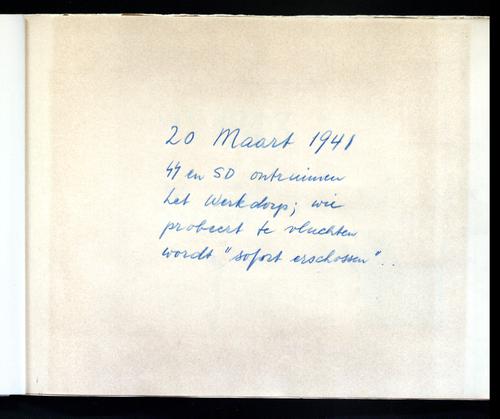 20 Maart 1941
SS en SD ontruimen
het Werkdorp; wie
probeert te vluchten
wordt "sofort erschossen"..